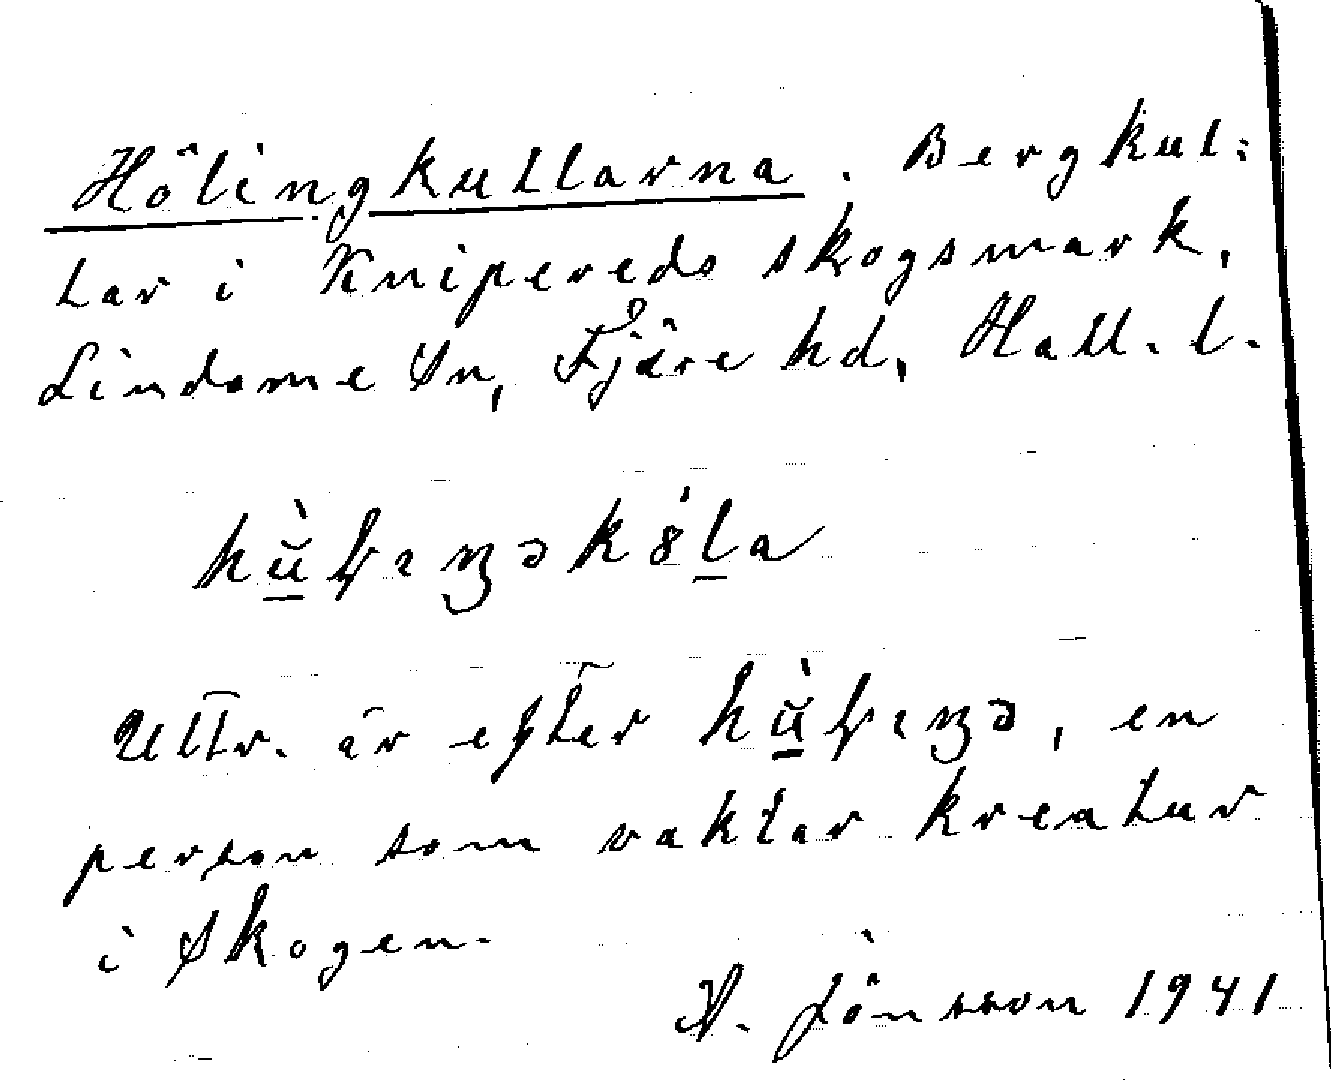 Hölingkullarna. Bergkul-
lar i Knipereds skogsmark,
Lindome sn, Fjäre hd, Hall. l.
Uttr. är efter en
person som vaktar kreatur
i skogen.
A. Jönsson 1941